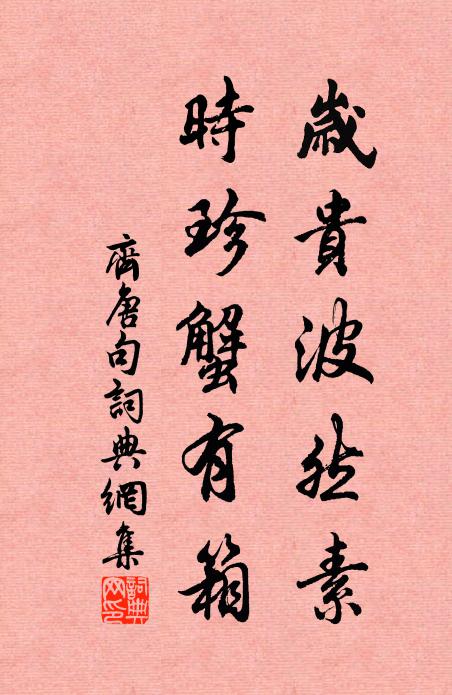 歲貴波然素
時珍蟹有箱
齊唐句詞典網集
詞典网印